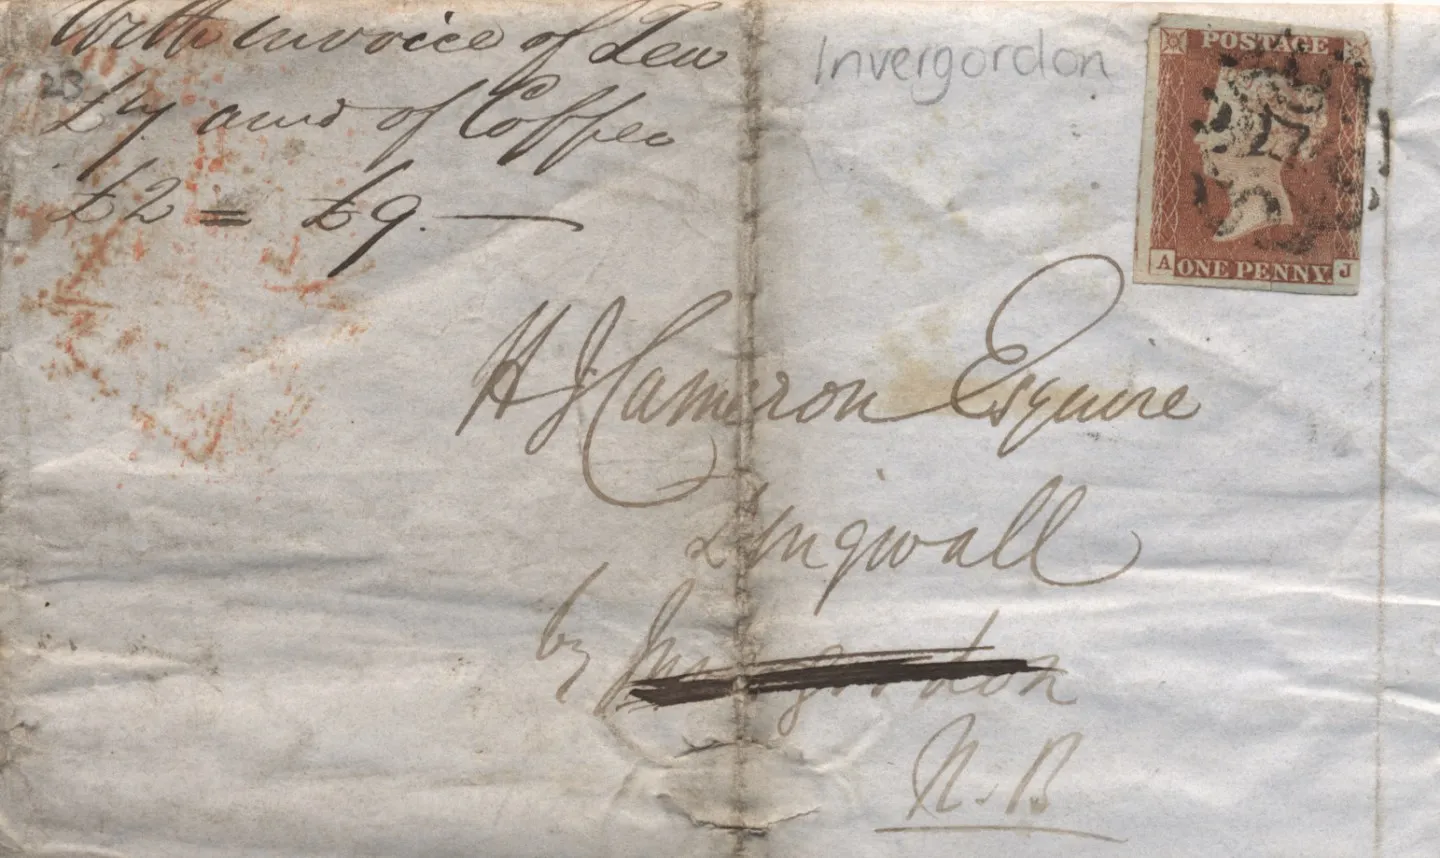 With invoice of Tea
£7 and of Coffee
£2 = £9.
23
Invergordon
POSTAGE
A ONE PENNY. J
H J Cameron Esquire
Dingwall
by Invergordon
N.B